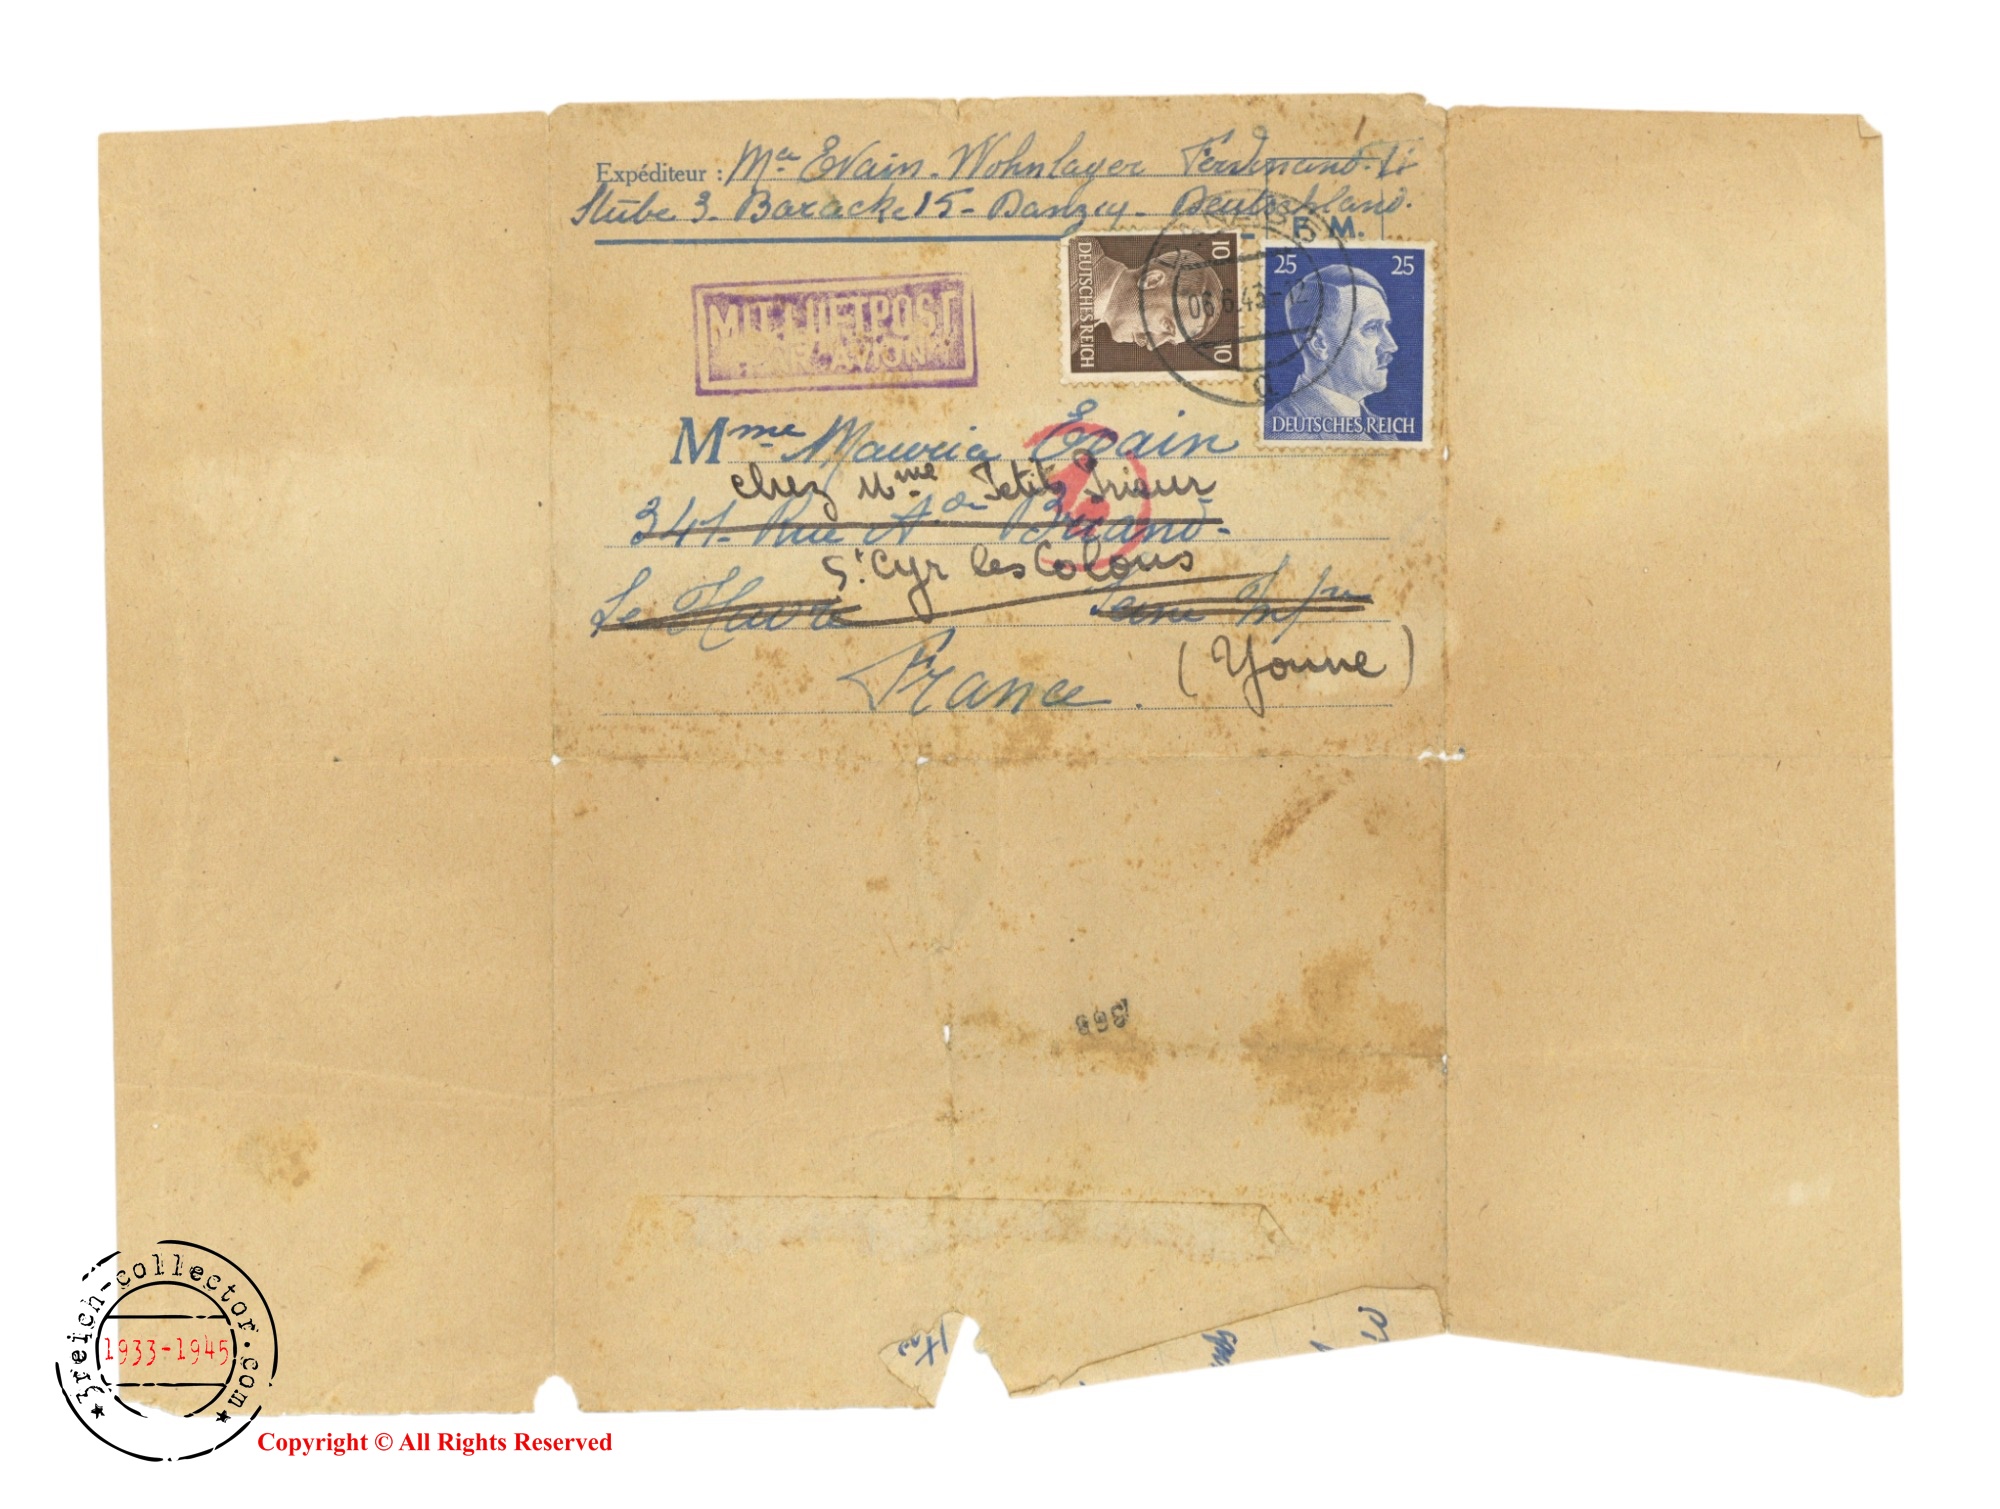 Expéditeur : Mce Evain - Wohnlager Ferdinand
Stube 3 - Baracke 15 - Danzig - Deutschland.
F. M.
MIT LUFTPOST
PAR AVION
10 10
DEUTSCHES REICH
06.6.43-12
a
25 25
DEUTSCHES REICH
Mme Maurice Evain
chez Mme Petit Prieur
341 - Rue A. de Briand -
St Cyr les Colons
Le Havre Seine Infre
(Yonne)
France.
3reich-collector.com
1933-1945
Copyright © All Rights Reserved